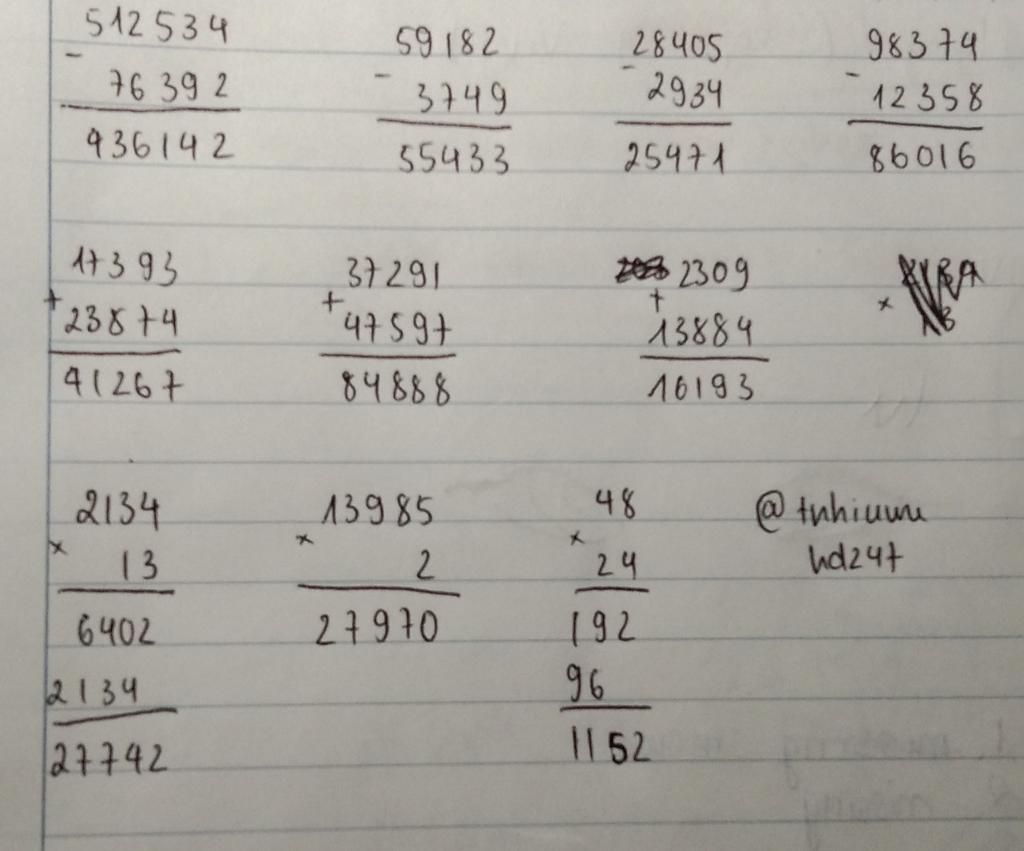 512534
-
76392
436142
59182
-
3749
55433
28405
-
2934
25471
98374
-
12358
86016
17393
+
23874
41267
37291
+
47597
84888
2309
+
13884
16193
×
2134
×
13
6402
2134
27742
13985
×
2
27970
48
×
24
192
96
1152
@tnhiuuu
hd247